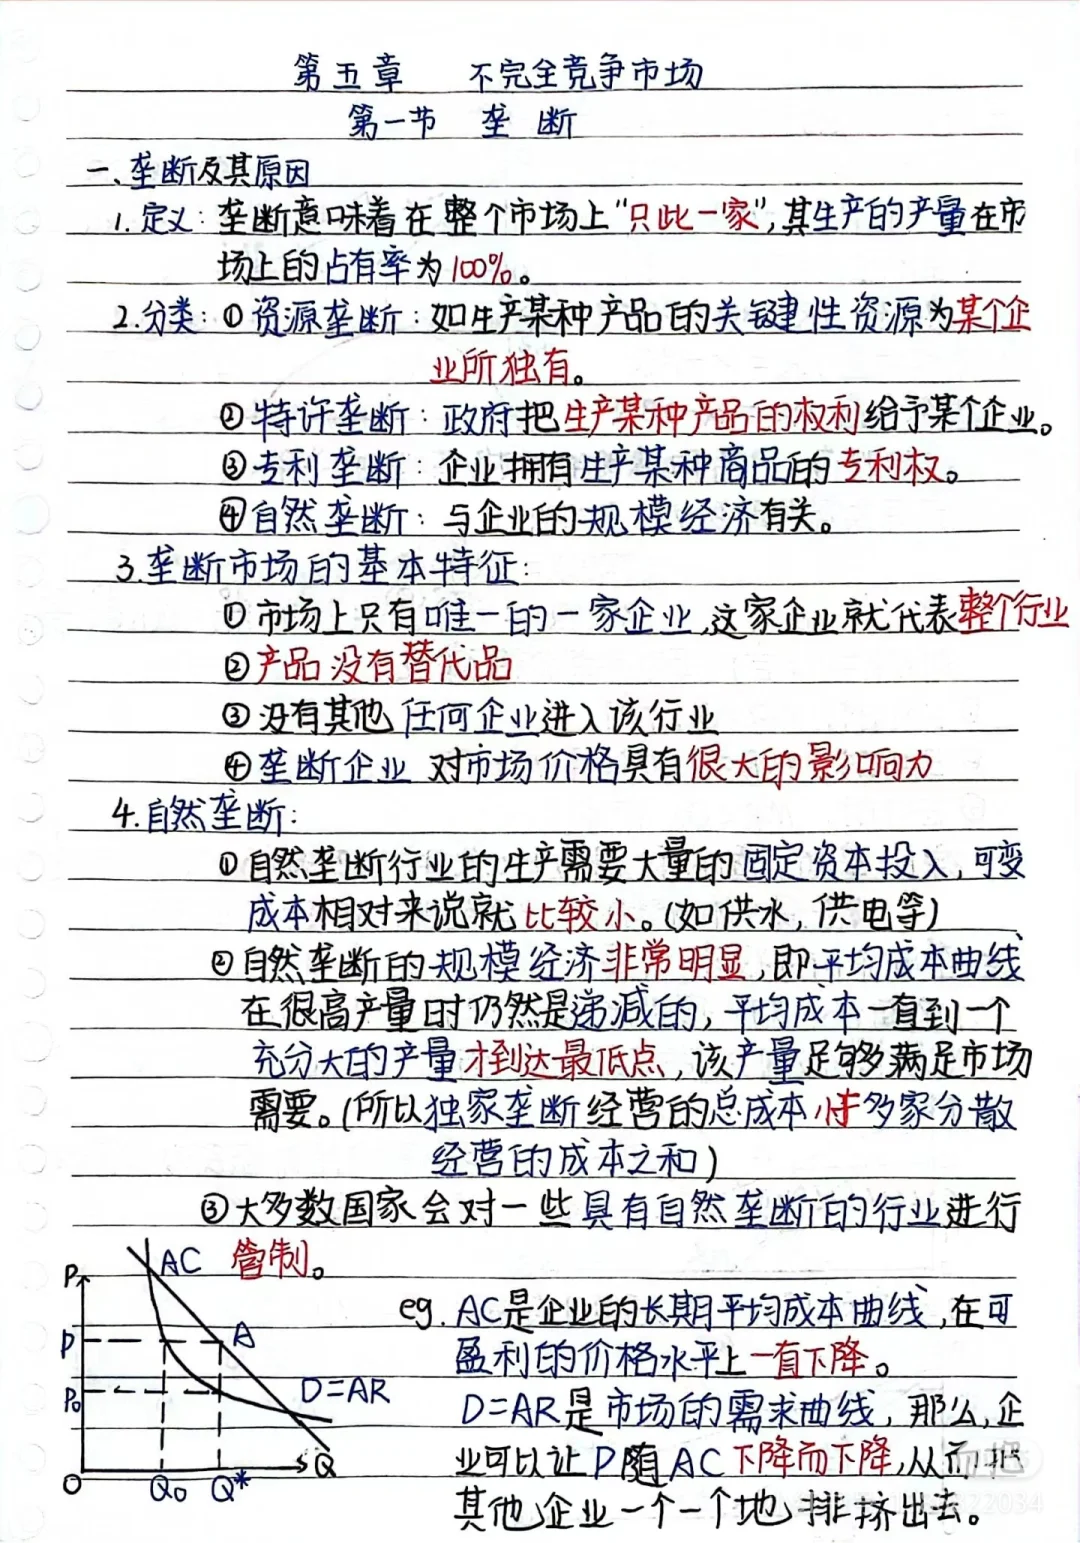 第五章 不完全竞争市场
第一节 垄断
一、垄断及其原因
1.定义：垄断意味着在整个市场上“只此一家”，其生产的产量在市
场上的占有率为100%。
2.分类：①资源垄断：如生产某种产品的关键性资源为某个企
业所独有。
②特许垄断：政府把生产某种产品的权利给予某个企业。
③专利垄断：企业拥有生产某种商品的专利权。
④自然垄断：与企业的规模经济有关。
3.垄断市场的基本特征：
①市场上只有唯一的一家企业，这家企业就代表整个行业
②产品没有替代品
③没有其他任何企业进入该行业
④垄断企业对市场价格具有很大的影响力
4.自然垄断：
①自然垄断行业的生产需要大量的固定资本投入，可变
成本相对来说就比较小。(如供水，供电等)
②自然垄断的规模经济非常明显，即平均成本曲线
在很高产量时仍然是递减的，平均成本一直到一个
充分大的产量才到达最低点，该产量足够满足市场
需要。(所以独家垄断经营的总成本小于多家分散
经营的成本之和)
③大多数国家会对一些具有自然垄断的行业进行
管制。
P
AC
P
A
P₀
D=AR
O
Q₀
Q*
Q
eg. AC是企业的长期平均成本曲线，在可
盈利的价格水平上一直下降。
D=AR是市场的需求曲线，那么，企
业可以让P随AC下降而下降，从而把
其他企业一个一个地排挤出去。